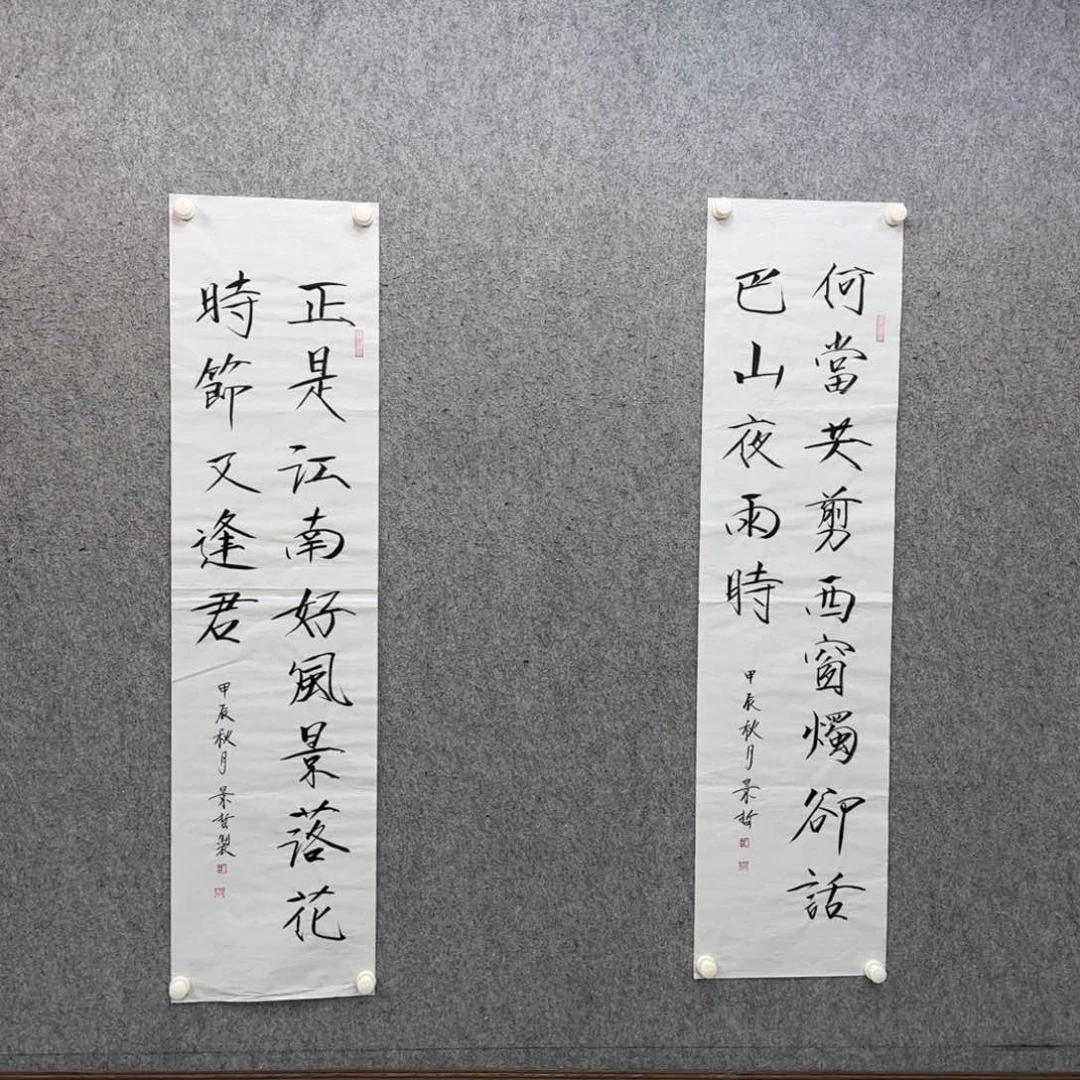 何當共剪西窗燭卻話
巴山夜雨時
甲辰秋月
正是江南好風景落花
時節又逢君
甲辰秋月